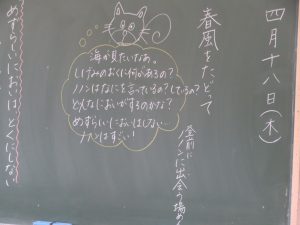 四月十八日(木)
春風をたどって
登前に
ノノンに出会う場め
海が見たいなあ。
しげみのおくに何があるの?
ノノンはなにを言っているの?しているの?
どんなにおいがするのかな?
めずらしいにおいはしない…
ノノンはすごい!
めずらしいにおいは、とくにしない